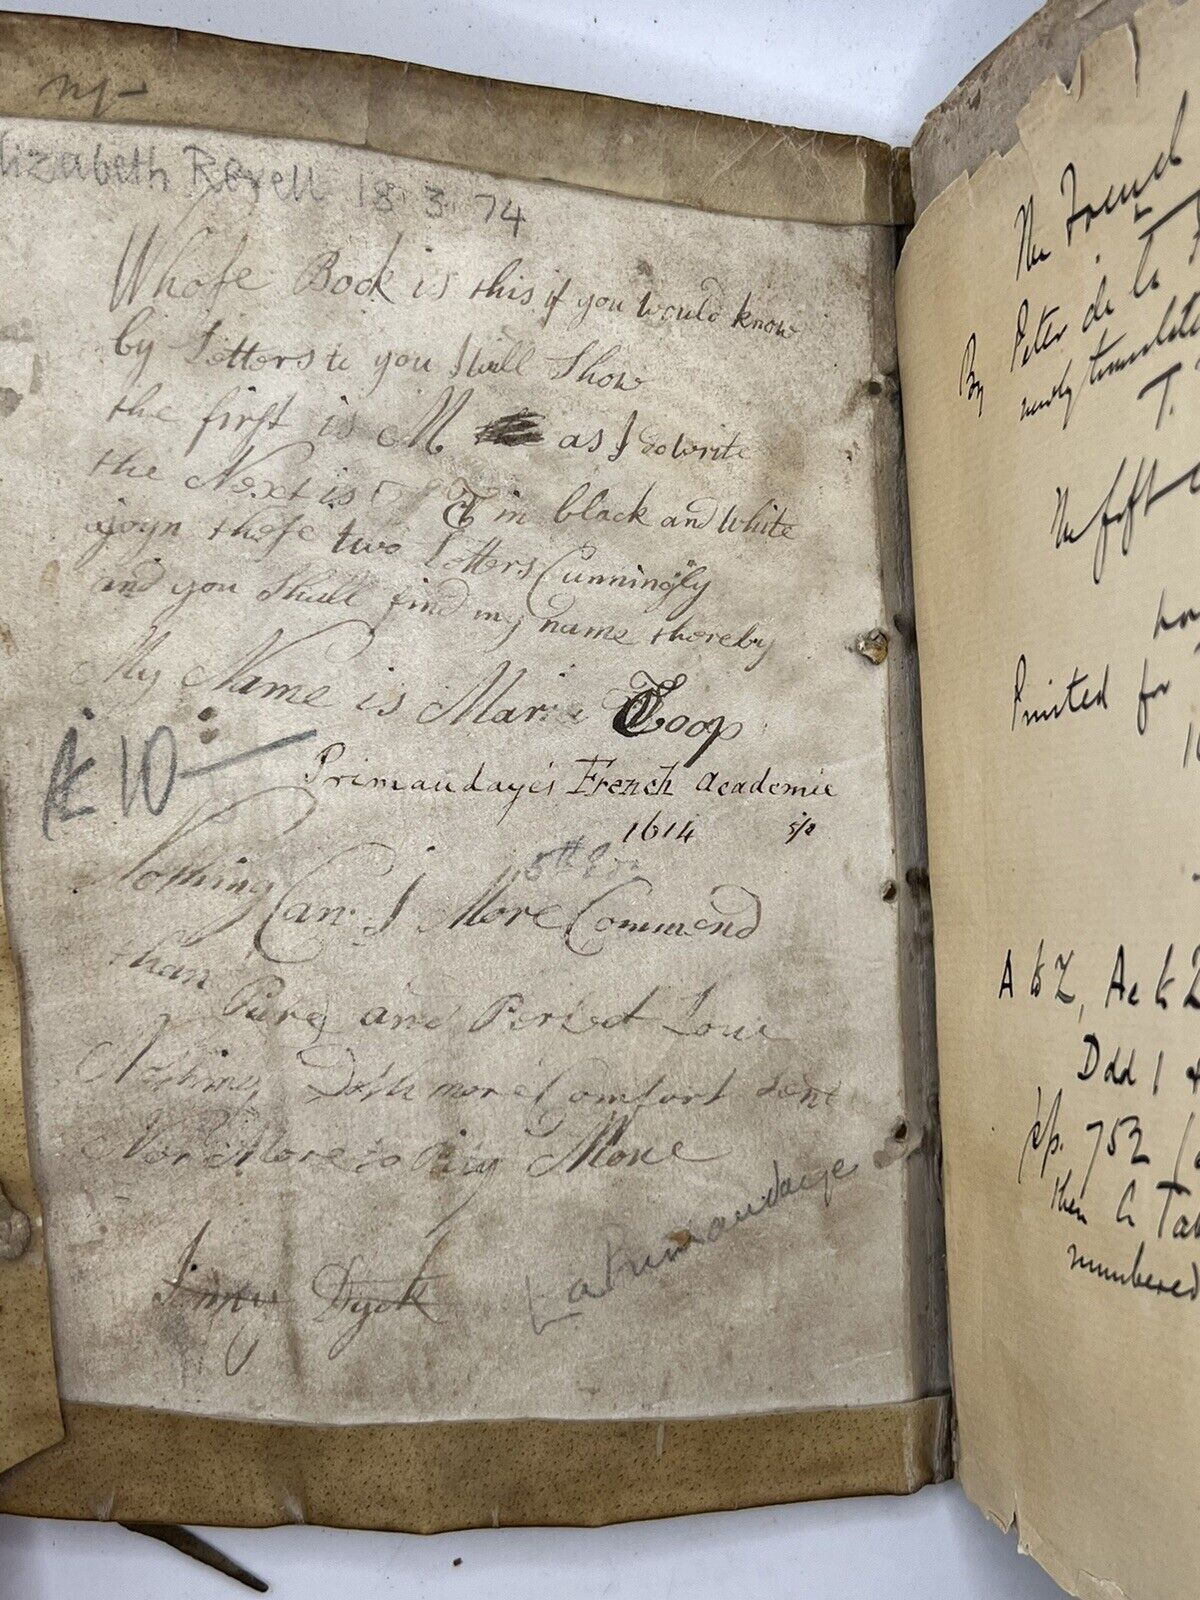 Elizabeth Revell 18 3 74
Whose Book is this if you would know
by Letters to you I will Show
the first is M as I do write
the Next is T in black and white
ajoyn those two Letters Cunningly
and you Shall find my name thereby
My Name is Marie Toop
£10-
Primaudaye's French Academie
1614 5/2
Nothing Can I More Commend
than Pure and Perfect Loue
Nothing Doth more Comfort
Nor More
Dyck
La Primaudaye
The French
By Peter de la
newly translate
T.
The first
Printed for
A to Z, Aa to
Ddd 1
pp. 752
then a Tab
numbered